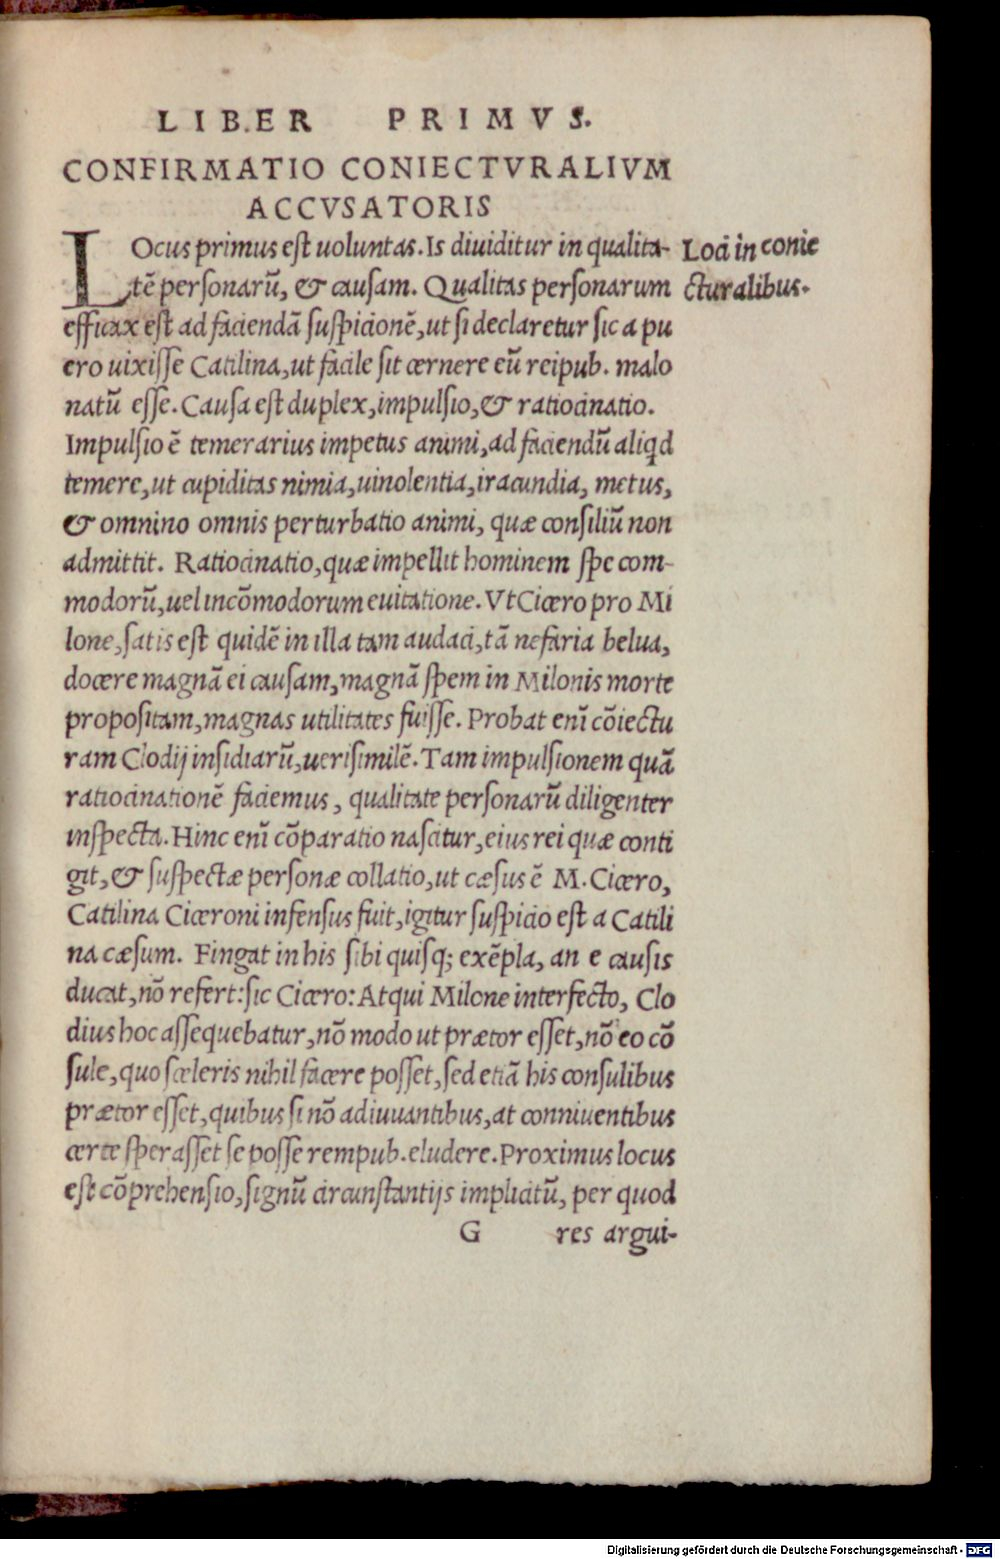 LIBER PRIMVS.
CONFIRMATIO CONIECTVRALIVM
ACCVSATORIS
LOcus primus est uoluntas. Is diuiditur in qualita-
tē personarū, & causam. Qualitas personarum
efficax est ad faciendā suspicionē, ut si declaretur sic a pu
ero uixisse Catilina, ut facile sit cernere eū reipub. malo
natū esse. Causa est duplex, impulsio, & ratiocinatio.
Impulsio ē temerarius impetus animi, ad faciendū aliqd
temere, ut cupiditas nimia, uinolentia, iracundia, metus,
& omnino omnis perturbatio animi, quæ consiliū non
admittit. Ratiocinatio, quæ impellit hominem spe com-
modorū, uel incōmodorum euitatione. Vt Cicero pro Mi
lone, satis est quidē in illa tam audaci, tā nefaria belua,
docere magnā ei causam, magnā spem in Milonis morte
propositam, magnas utilitates fuisse. Probat enī cōiectu
ram Clodij insidiarū, uerisimilē. Tam impulsionem quā
ratiocinationē faciemus, qualitate personarū diligenter
inspecta. Hinc enī cōparatio nascitur, eius rei quæ conti
git, & suspectæ personæ collatio, ut cæsus ē M. Cicero,
Catilina Ciceroni infensus fuit, igitur suspicio est a Catili
na cæsum. Fingat in his sibi quisq; exēpla, an e causis
ducat, nō refert: sic Cicero: Atqui Milone interfecto, Clo
dius hoc assequebatur, nō modo ut prætor esset, nō eo cō
sule, quo sceleris nihil facere posset, sed etiā his consulibus
prætor esset, quibus si nō adiuuantibus, at conniuentibus
certe sperasset se posse rempub. eludere. Proximus locus
est cōprehensio, signū circunstantijs implicitū, per quod
G res argui-
Loci in conie
cturalibus.
Digitalisierung gefördert durch die Deutsche Forschungsgemeinschaft - DFG